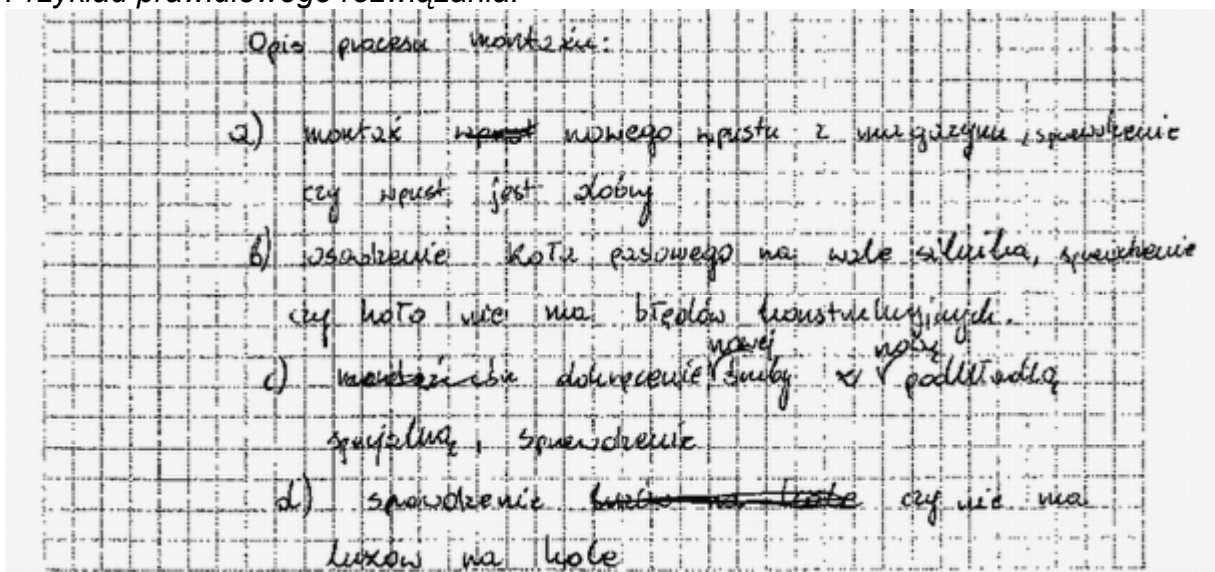 Przykład prawidłowego rozwiązania:
Opis procesu montażu:
a) montaż wpust nowego wpustu z magazynu, sprawdzenie
czy wpust jest dobry
b) osadzenie koła pasowego na wale silnika, sprawdzenie
czy koło nie ma błędów konstrukcyjnych.
nowej nową
c) dokręcenie śruby z podkładką
specjalną, sprawdzenie
d) sprawdzenie luzów na kole czy nie ma
luzów na kole